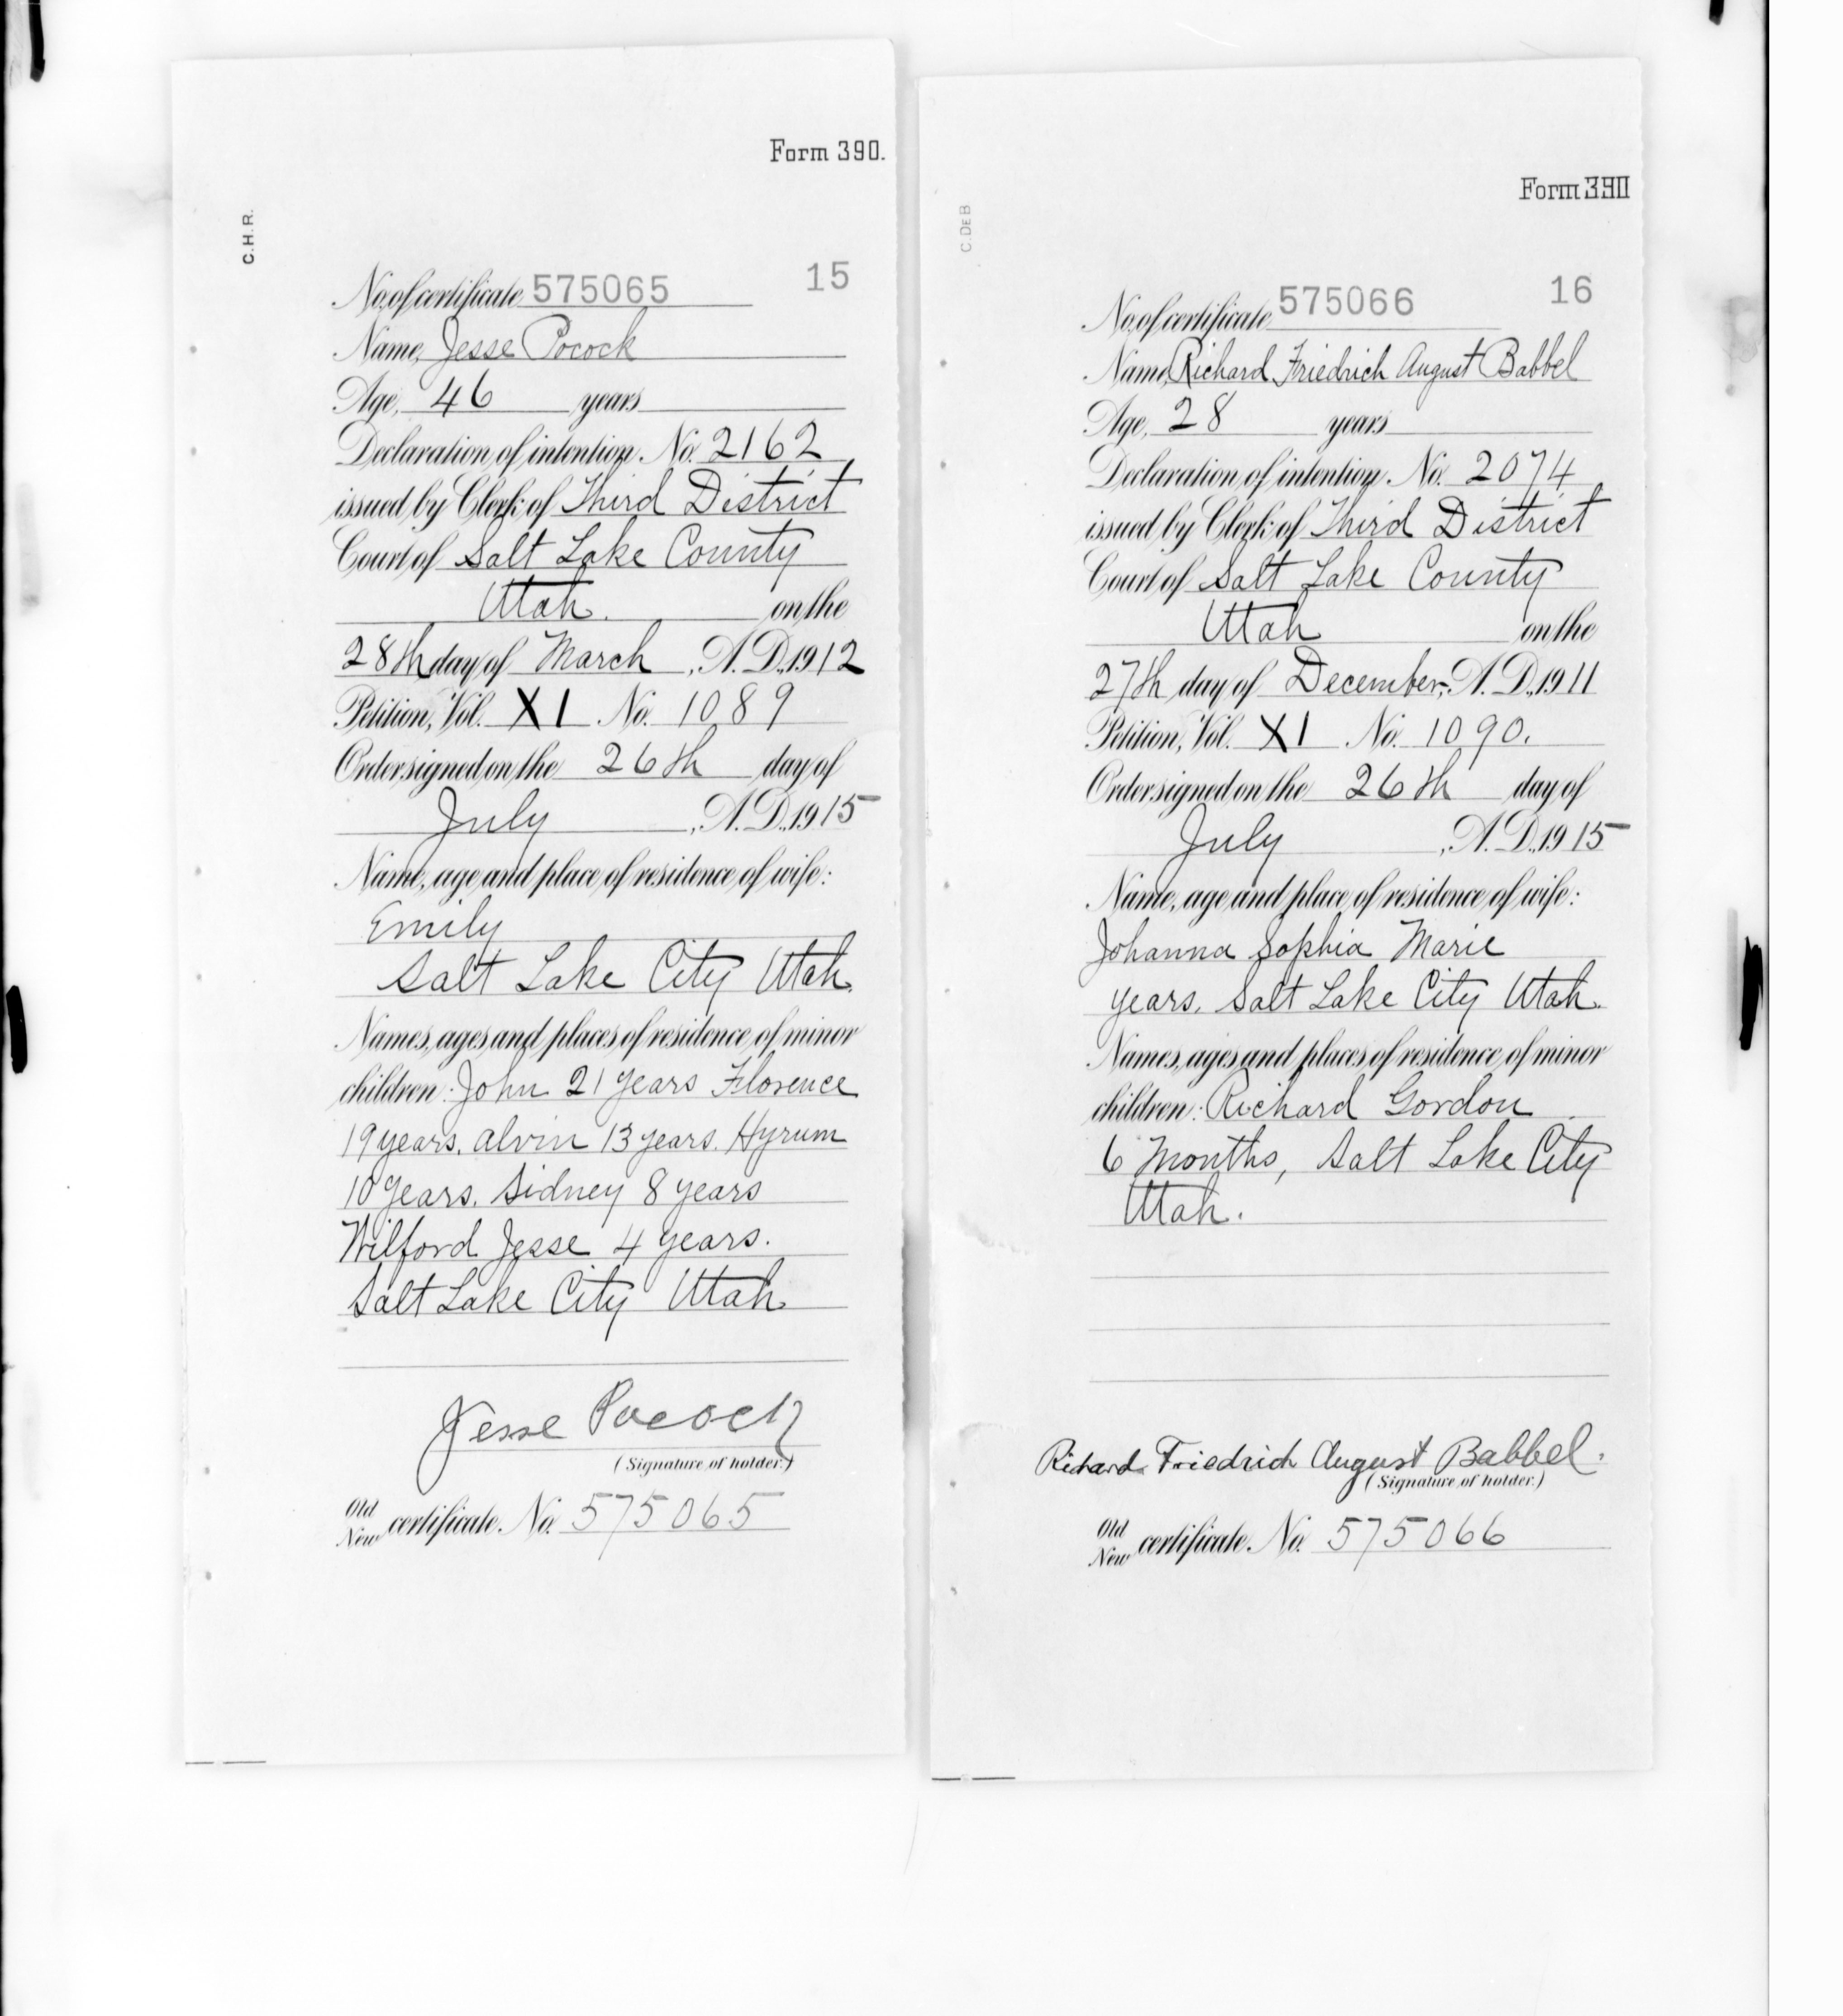 Form 390.
C.H.R.
15
No. of certificate 575065
Name, Jesse Pocock
Age, 46 years
Declaration of intention No. 2162
issued by Clerk of Third District
Court of Salt Lake County
Utah. on the
28th day of March, A.D. 1912
Petition, Vol. XI No. 1089
Order signed on the 26th day of
July, A.D. 1915
Name, age and place of residence of wife:
Emily
Salt Lake City Utah.
Names, ages and places of residence of minor
children: John 21 years Florence
19 years. Alvin 13 years. Hyrum
10 years. Sidney 8 years
Wilford Jesse 4 years.
Salt Lake City Utah
Jesse Pocock
(Signature of holder.)
Old
New certificate No. 575065
Form 390
C.DEB
16
No. of certificate 575066
Name, Richard Friedrich August Babbel
Age, 28 years
Declaration of intention No. 2074
issued by Clerk of Third District
Court of Salt Lake County
Utah on the
27th day of December, A.D. 1911
Petition, Vol. XI No. 1090.
Order signed on the 26th day of
July, A.D. 1915
Name, age and place of residence of wife:
Johanna Sophia Marie
years. Salt Lake City Utah.
Names, ages and places of residence of minor
children: Richard Gordon
6 Months, Salt Lake City
Utah.
Richard Friedrich August Babbel.
(Signature of holder.)
Old
New certificate No. 575066